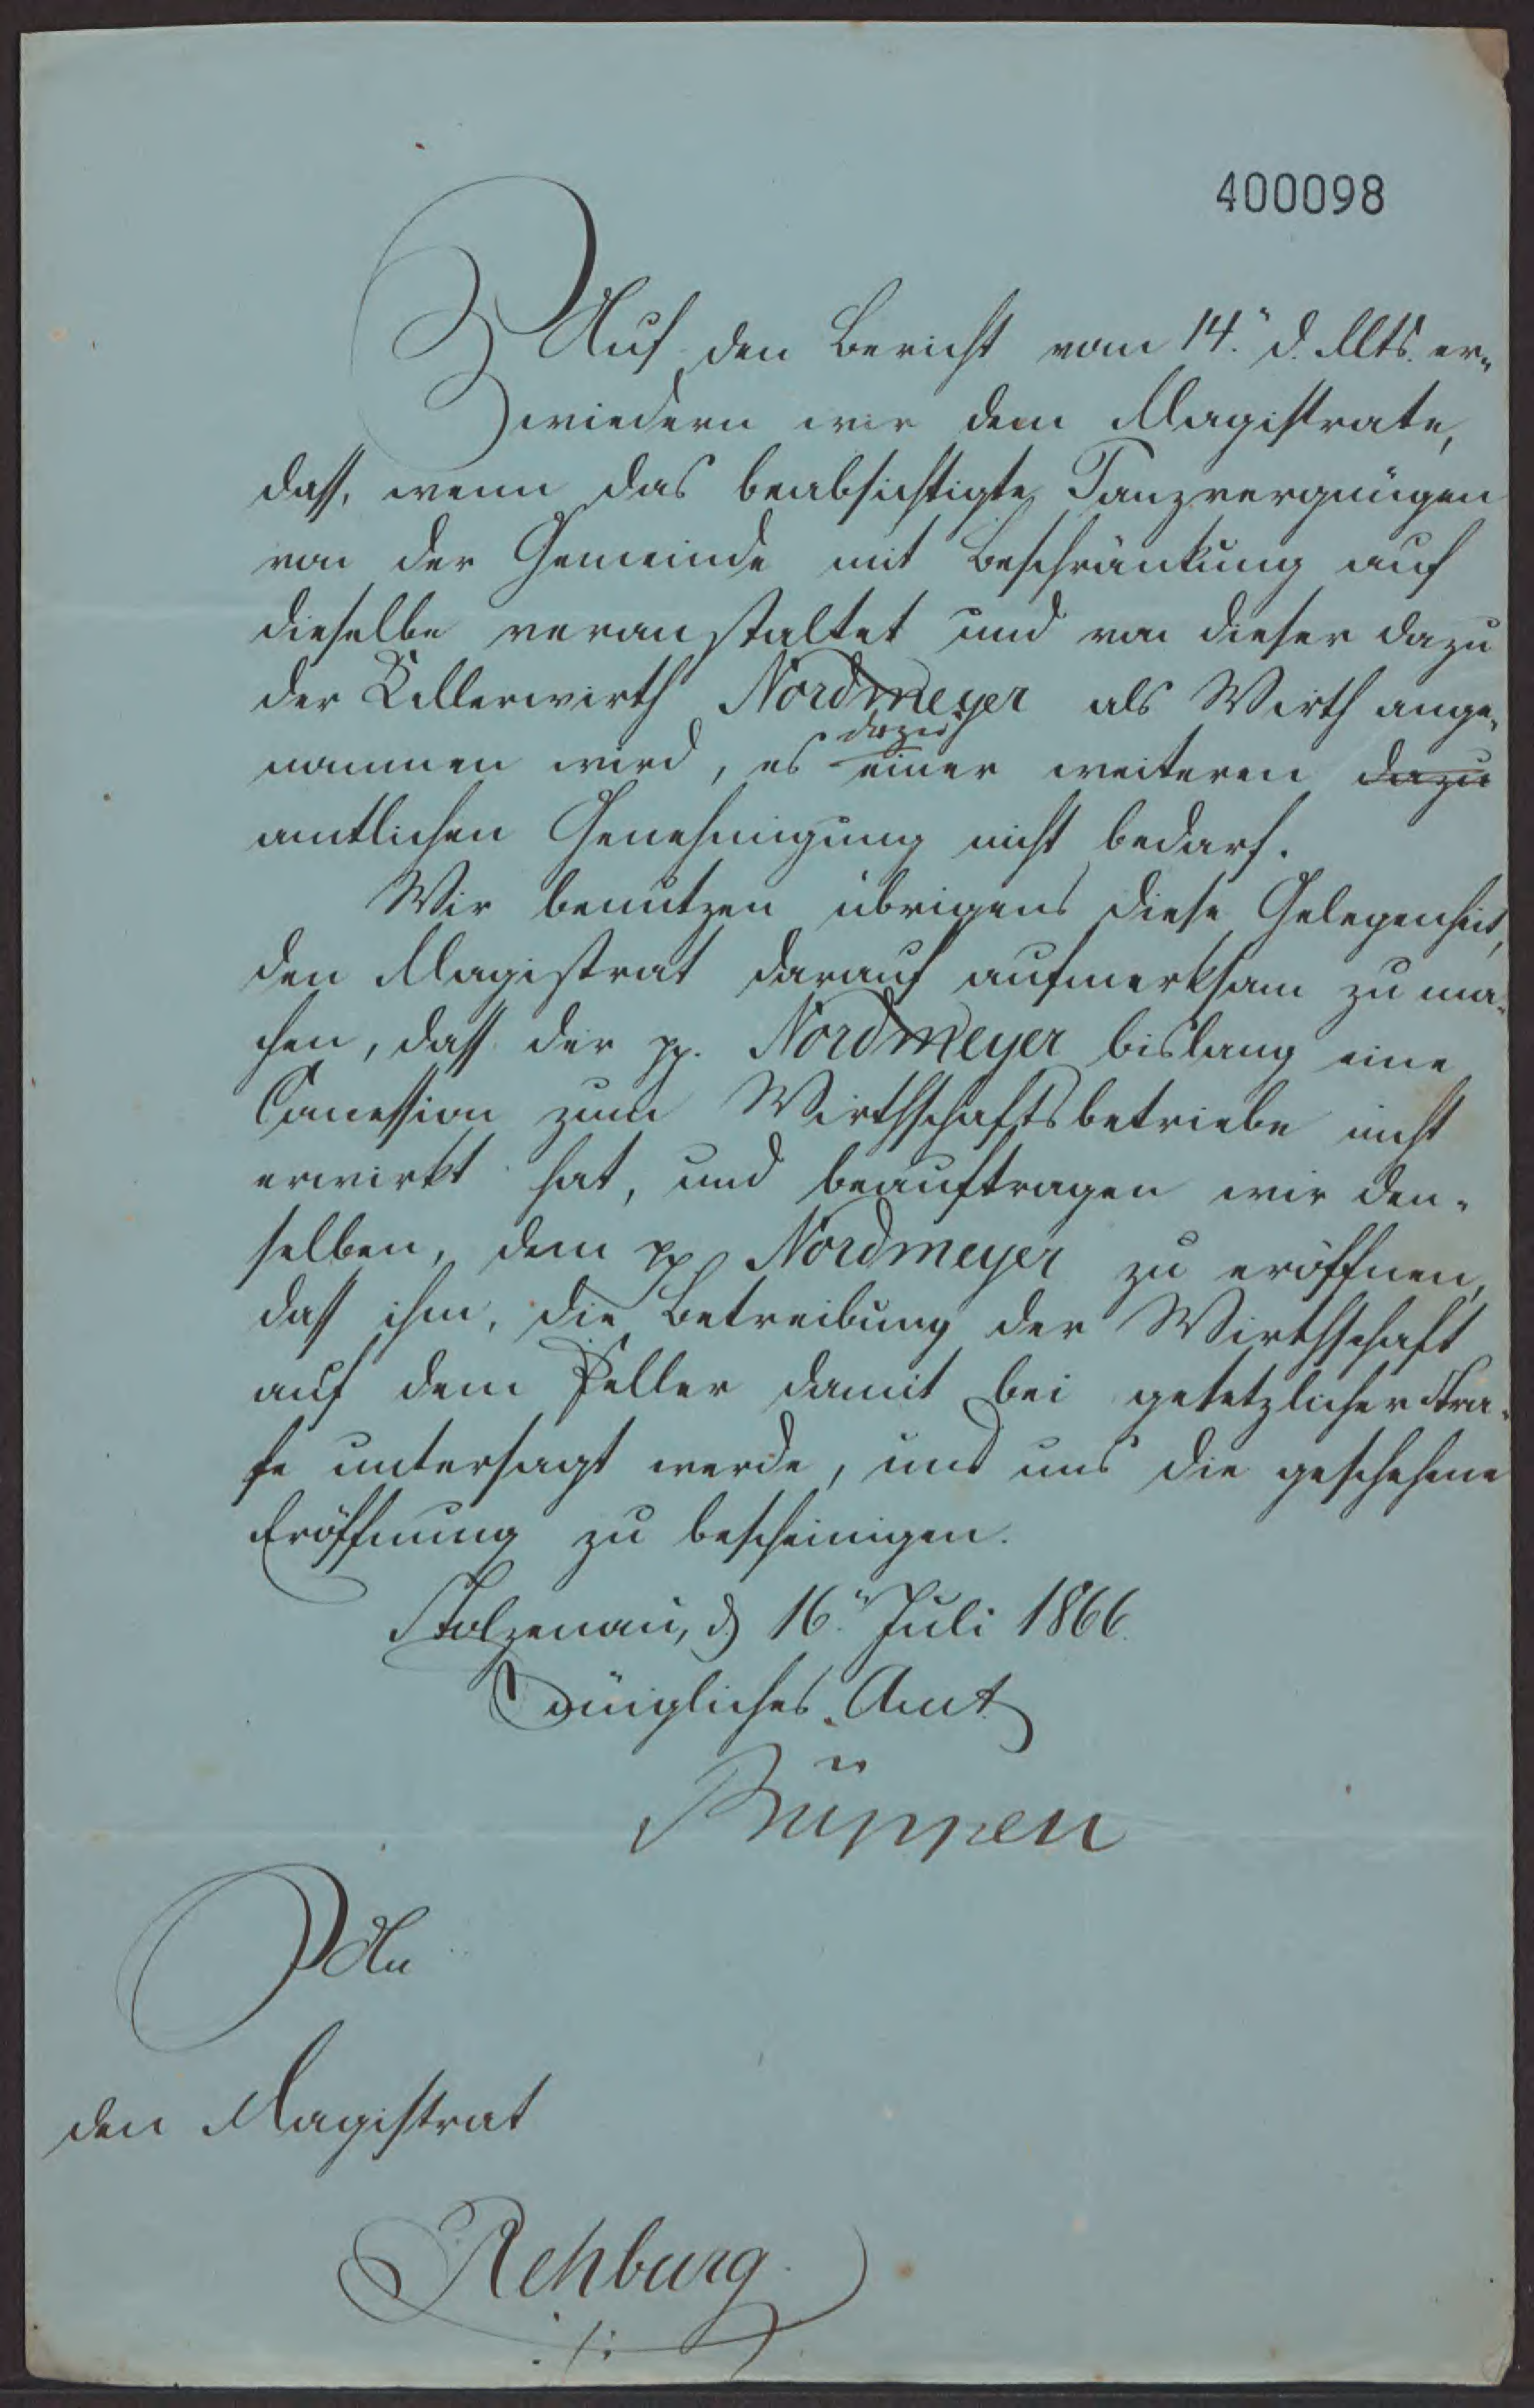 400098
Auf den Bericht vom 14. d. Mts. er-
wiedern wir dem Magistrate,
daß, wenn das beabsichtigte Tanzvergnügen
von der Gemeinde mit Beschränkung auf
dieselbe veranstaltet und von dieser dazu
der Kellerwirth Nordmeyer als Wirth ange-
dazu
nommen wird, es einer weiteren dazu
amtlichen Genehmigung nicht bedarf.
Wir benutzen übrigens diese Gelegenheit,
den Magistrat darauf aufmerksam zu ma-
chen, daß der pp. Nordmeyer bislang eine
Concession zum Wirthschaftsbetriebe nicht
erwirkt hat, und beauftragen wir den-
selben, dem pp Nordmeyer zu eröffnen,
daß ihm, die Betreibung der Wirthschaft
auf dem Keller damit bei gesetzlicher Stra-
fe untersagt werde, und uns die geschehene
Eröffnung zu bescheinigen.
Stolzenau, d. 16. Juli 1866.
Königliches Amt
An
den Magistrat
Rehburg.